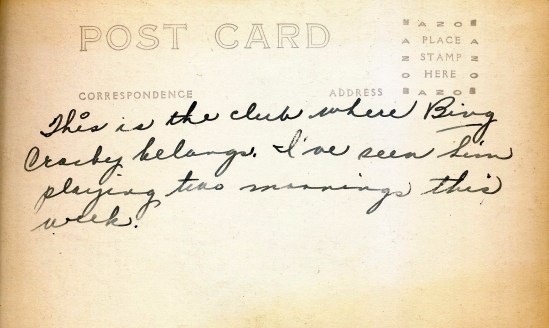 POST CARD
AZO
PLACE
STAMP
HERE
AZO
CORRESPONDENCE ADDRESS
This is the club where Bing
Crosby belongs. I've seen him
playing two mornings this
week.